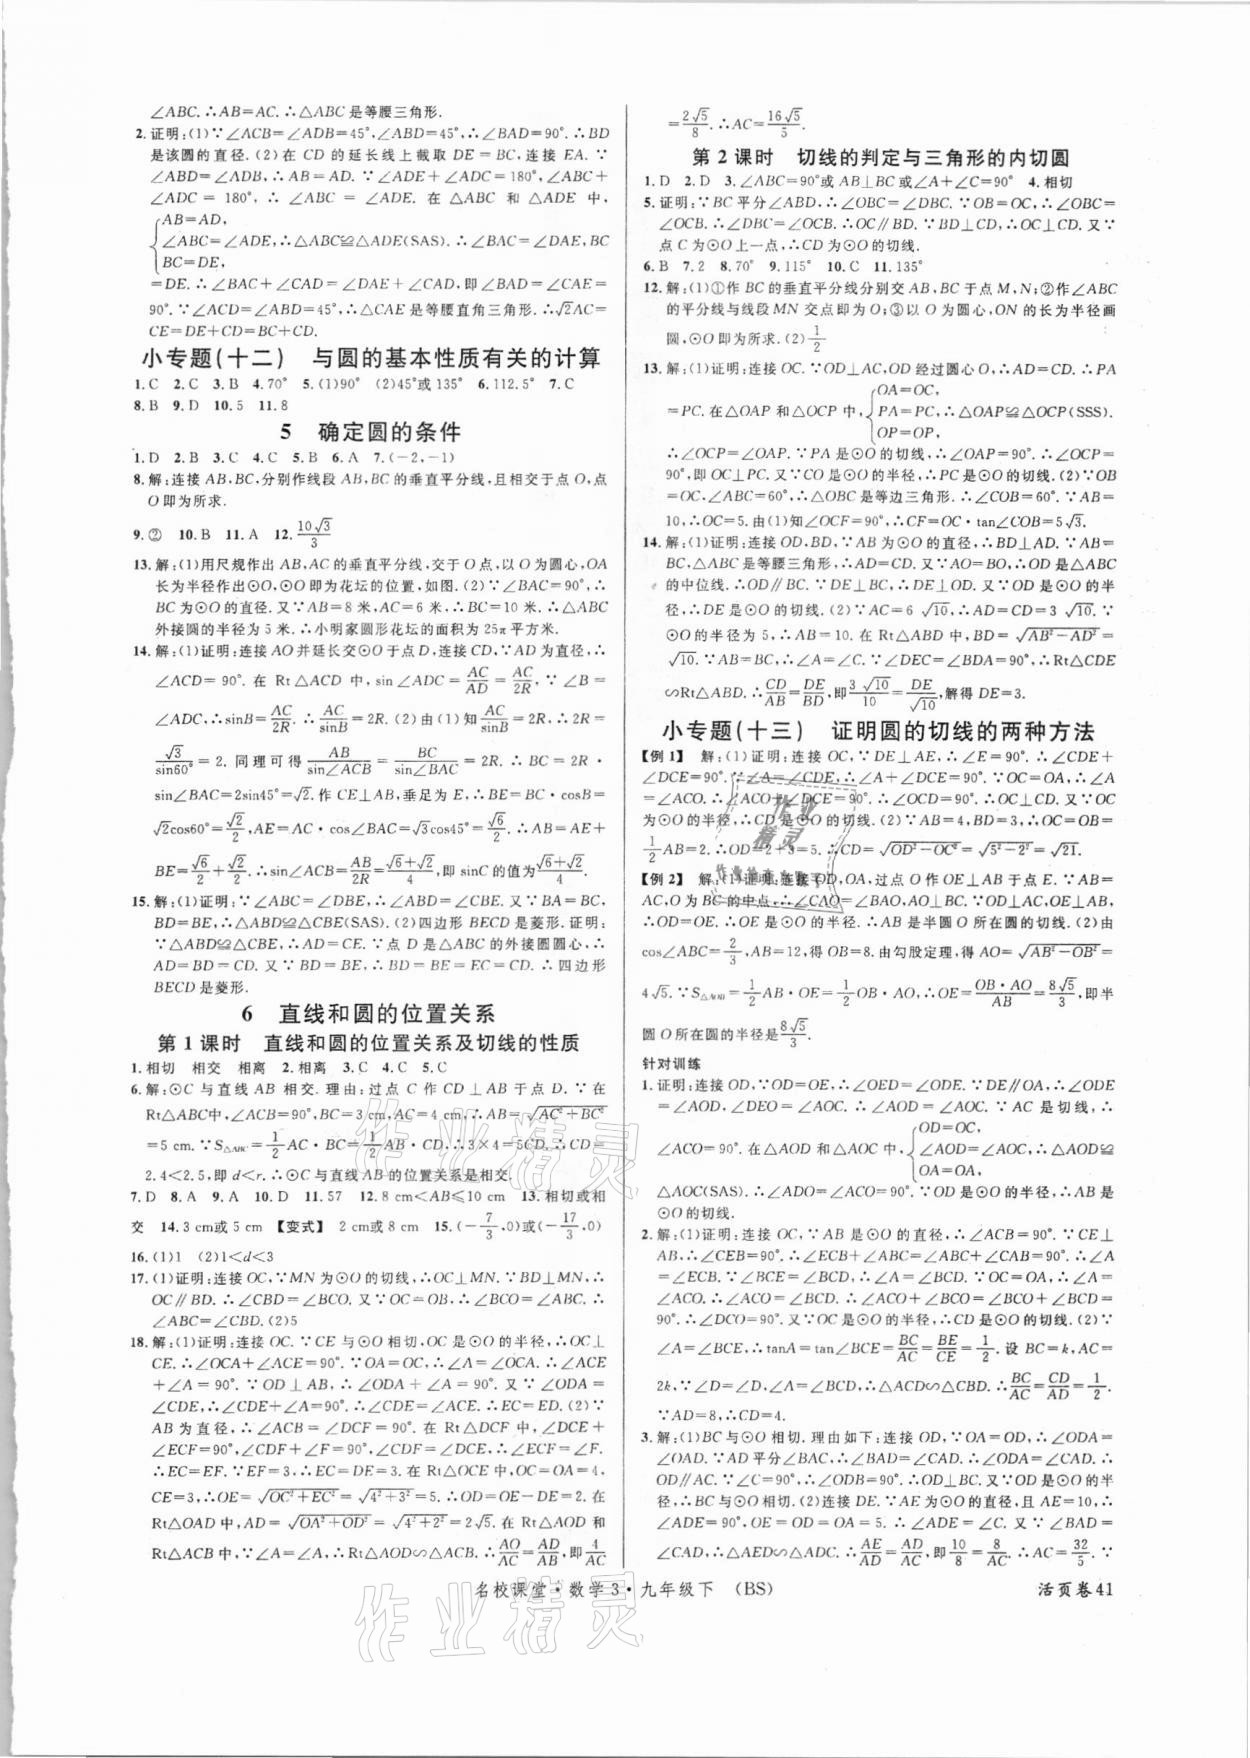 ∠ABC.∴AB=AC.∴△ABC是等腰三角形.
2.证明:(1)∵∠ACB=∠ADB=45°,∠ABD=45°,∴∠BAD=90°.∴BD
是该圆的直径.(2)在CD的延长线上截取DE=BC,连接EA.∵
∠ABD=∠ADB,∴AB=AD.∵∠ADE+∠ADC=180°,∠ABC+
∠ADC=180°,∴∠ABC=∠ADE.在△ABC和△ADE中,
AB=AD,
∠ABC=∠ADE,∴△ABC≌△ADE(SAS).∴∠BAC=∠DAE,BC
BC=DE,
=DE.∴∠BAC+∠CAD=∠DAE+∠CAD,即∠BAD=∠CAE=
90°.∵∠ACD=∠ABD=45°,∴△CAE是等腰直角三角形.∴√2AC=
CE=DE+CD=BC+CD.
小专题(十二) 与圆的基本性质有关的计算
1.C 2.C 3.B 4.70° 5.(1)90° (2)45°或135° 6.112.5° 7.C
8.B 9.D 10.5 11.8
5 确定圆的条件
1.D 2.B 3.C 4.C 5.B 6.A 7.(-2,-1)
8.解:连接AB,BC,分别作线段AB,BC的垂直平分线,且相交于点O,点
O即为所求.
9.② 10.B 11.A 12.10√3/3
13.解:(1)用尺规作出AB,AC的垂直平分线,交于O点,以O为圆心,OA
长为半径作出⊙O,⊙O即为花坛的位置,如图.(2)∵∠BAC=90°,∴
BC为⊙O的直径.又∵AB=8米,AC=6米,∴BC=10米.∴△ABC
外接圆的半径为5米.∴小明家圆形花坛的面积为25π平方米.
14.解:(1)证明:连接AO并延长交⊙O于点D,连接CD,∵AD为直径,∴
∠ACD=90°.在Rt△ACD中,sin∠ADC=AC/AD=AC/2R,∵∠B=
∠ADC,∴sinB=AC/2R.∴AC/sinB=2R.(2)由(1)知AC/sinB=2R,∴2R=
√3/sin60°=2.同理可得AB/sin∠ACB=BC/sin∠BAC=2R=2.∴BC=2R·
sin∠BAC=2sin45°=√2.作CE⊥AB,垂足为E,∴BE=BC·cosB=
√2cos60°=√2/2,AE=AC·cos∠BAC=√3cos45°=√6/2.∴AB=AE+
BE=√6/2+√2/2.∴sin∠ACB=AB/2R=(√6+√2)/4,即sinC的值为(√6+√2)/4.
15.解:(1)证明:∵∠ABC=∠DBE,∴∠ABD=∠CBE.又∵BA=BC,
BD=BE,∴△ABD≌△CBE(SAS).(2)四边形BECD是菱形.证明:
∵△ABD≌△CBE,∴AD=CE.∵点D是△ABC的外接圆圆心,∴
AD=BD=CD.又∵BD=BE,∴BD=BE=EC=CD.∴四边形
BECD是菱形.
6 直线和圆的位置关系
第1课时 直线和圆的位置关系及切线的性质
1.相切 相交 相离 2.相离 3.C 4.C 5.C
6.解:⊙C与直线AB相交.理由:过点C作CD⊥AB于点D.∵在
Rt△ABC中,∠ACB=90°,BC=3 cm,AC=4 cm,∴AB=√(AC²+BC²)
=5 cm.∵S△ABC=1/2AC·BC=1/2AB·CD,∴3×4=5CD.∴CD=
2.4<2.5,即d<r.∴⊙C与直线AB的位置关系是相交.
7.D 8.A 9.A 10.D 11.57 12.8 cm<AB≤10 cm 13.相切或相
交 14.3 cm或5 cm 【变式】 2 cm或8 cm 15.(-7/3,0)或(-17/3,0)
16.(1)1 (2)1<d<3
17.(1)证明:连接OC,∵MN为⊙O的切线,∴OC⊥MN.∵BD⊥MN,∴
OC∥BD.∴∠CBD=∠BCO.又∵OC=OB,∴∠BCO=∠ABC.∴
∠ABC=∠CBD.(2)5
18.解:(1)证明:连接OC.∵CE与⊙O相切,OC是⊙O的半径,∴OC⊥
CE.∴∠OCA+∠ACE=90°.∵OA=OC,∴∠A=∠OCA.∴∠ACE
+∠A=90°.∵OD⊥AB,∴∠ODA+∠A=90°.又∵∠ODA=
∠CDE,∴∠CDE+∠A=90°.∴∠CDE=∠ACE.∴EC=ED.(2)∵
AB为直径,∴∠ACB=∠DCF=90°.在Rt△DCF中,∠DCE+
∠ECF=90°,∠CDF+∠F=90°,∠CDF=∠DCE,∴∠ECF=∠F.
∴EC=EF.∵EF=3,∴EC=DE=3.在Rt△OCE中,OC=OA=4,
CE=3,∴OE=√(OC²+EC²)=√(4²+3²)=5.∴OD=OE-DE=2.在
Rt△OAD中,AD=√(OA²+OD²)=√(4²+2²)=2√5.在Rt△AOD和
Rt△ACB中,∵∠A=∠A,∴Rt△AOD∽△ACB.∴AO/AC=AD/AB,即4/AC
=2√5/8.∴AC=16√5/5.
第2课时 切线的判定与三角形的内切圆
1.D 2.D 3.∠ABC=90°或AB⊥BC或∠A+∠C=90° 4.相切
5.证明:∵BC平分∠ABD,∴∠OBC=∠DBC.∵OB=OC,∴∠OBC=
∠OCB.∴∠DBC=∠OCB.∴OC∥BD.∵BD⊥CD,∴OC⊥CD.又∵
点C为⊙O上一点,∴CD为⊙O的切线.
6.B 7.2 8.70° 9.115° 10.C 11.135°
12.解:(1)①作BC的垂直平分线分别交AB,BC于点M,N;②作∠ABC
的平分线与线段MN交点即为O;③以O为圆心,ON的长为半径画
圆,⊙O即为所求.(2)1/2
13.解:(1)证明:连接OC.∵OD⊥AC,OD经过圆心O,∴AD=CD.∴PA
OA=OC,
=PC.在△OAP和△OCP中,PA=PC,∴△OAP≌△OCP(SSS).
OP=OP,
∴∠OCP=∠OAP.∵PA是⊙O的切线,∴∠OAP=90°.∴∠OCP=
90°,即OC⊥PC.又∵OC是⊙O的半径,∴PC是⊙O的切线.(2)∵OB
=OC,∠ABC=60°,∴△OBC是等边三角形.∴∠COB=60°.∵AB=
10,∴OC=5.由(1)知∠OCF=90°,∴CF=OC·tan∠COB=5√3.
14.解:(1)证明:连接OD,BD,∵AB为⊙O的直径,∴BD⊥AD.∵AB=
BC,∴△ABC是等腰三角形.∴AD=CD.又∵AO=BO,∴OD是△ABC
的中位线.∴OD∥BC.∵DE⊥BC,∴DE⊥OD.又∵OD是⊙O的半
径,∴DE是⊙O的切线.(2)∵AC=6√10,∴AD=CD=3√10.∵
⊙O的半径为5,∴AB=10.在Rt△ABD中,BD=√(AB²-AD²)=
√10.∵AB=BC,∴∠A=∠C.∵∠DEC=∠BDA=90°,∴Rt△CDE
∽Rt△ABD.∴CD/AB=DE/BD,即3√10/10=DE/√10,解得DE=3.
小专题(十三) 证明圆的切线的两种方法
【例1】 解:(1)证明:连接OC,∵DE⊥AE,∴∠E=90°.∴∠CDE+
∠DCE=90°.∵∠A=∠CDE,∴∠A+∠DCE=90°.∵OC=OA,∴∠A
=∠ACO.∴∠ACO+∠DCE=90°.∴∠OCD=90°.∴OC⊥CD.又∵OC
为⊙O的半径,∴CD是⊙O的切线.(2)∵AB=4,BD=3,∴OC=OB=
1/2AB=2.∴OD=2+3=5.∴CD=√(OD²-OC²)=√(5²-2²)=√21.
【例2】 解:(1)证明:连接OD,OA,过点O作OE⊥AB于点E.∵AB=
AC,O为BC的中点,∴∠CAO=∠BAO,AO⊥BC.∵OD⊥AC,OE⊥AB,
∴OD=OE.∴OE是⊙O的半径.∴AB是半圆O所在圆的切线.(2)由
cos∠ABC=2/3,AB=12,得OB=8.由勾股定理,得AO=√(AB²-OB²)=
4√5.∵S△AOB=1/2AB·OE=1/2OB·AO,∴OE=OB·AO/AB=8√5/3,即半
圆O所在圆的半径是8√5/3.
针对训练
1.证明:连接OD,∵OD=OE,∴∠OED=∠ODE.∵DE∥OA,∴∠ODE
=∠AOD,∠DEO=∠AOC.∴∠AOD=∠AOC.∵AC是切线,∴
OD=OC,
∠ACO=90°.在△AOD和△AOC中,∠AOD=∠AOC,∴△AOD≌
OA=OA,
△AOC(SAS).∴∠ADO=∠ACO=90°.∵OD是⊙O的半径,∴AB是
⊙O的切线.
2.解:(1)证明:连接OC,∵AB是⊙O的直径,∴∠ACB=90°.∵CE⊥
AB,∴∠CEB=90°.∴∠ECB+∠ABC=∠ABC+∠CAB=90°.∴∠A
=∠ECB.∵∠BCE=∠BCD,∴∠A=∠BCD.∵OC=OA,∴∠A=
∠ACO.∴∠ACO=∠BCD.∴∠ACO+∠BCO=∠BCO+∠BCD=
90°.∴∠DCO=90°.又∵OC是⊙O的半径,∴CD是⊙O的切线.(2)∵
∠A=∠BCE,∴tanA=tan∠BCE=BC/AC=BE/CE=1/2.设BC=k,AC=
2k,∵∠D=∠D,∠A=∠BCD,∴△ACD∽△CBD.∴BC/AC=CD/AD=1/2.
∵AD=8,∴CD=4.
3.解:(1)BC与⊙O相切.理由如下:连接OD,∵OA=OD,∴∠ODA=
∠OAD.∵AD平分∠BAC,∴∠BAD=∠CAD.∴∠ODA=∠CAD.∴
OD∥AC.∵∠C=90°,∴∠ODB=90°.∴OD⊥BC.又∵OD是⊙O的半
径,∴BC与⊙O相切.(2)连接DE.∵AE为⊙O的直径,且AE=10,∴
∠ADE=90°,OE=OD=OA=5.∴∠ADE=∠C.又∵∠BAD=
∠CAD,∴△AED∽△ADC.∴AE/AD=AD/AC,即10/8=8/AC.∴AC=32/5.
名校课堂·数学3·九年级下 (BS)
活页卷41
作业精灵
作业精灵
作业精灵